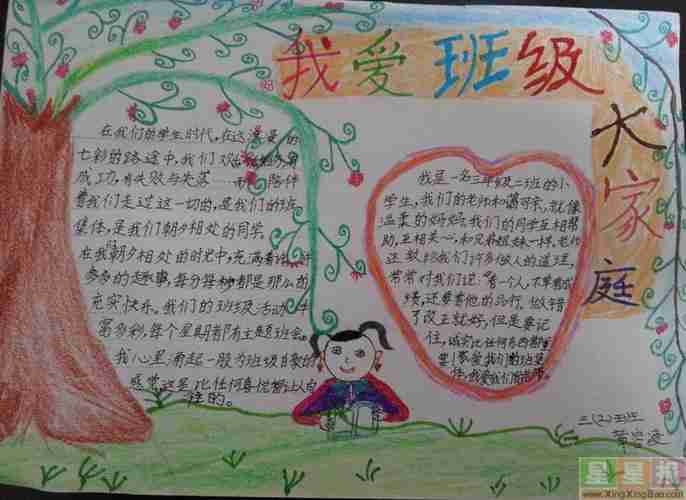 我爱班级
大家庭
在我们的学生时代,在这漫漫的
七彩的路途中,我们
成功,有失败与失落 陪伴
着我们走过这一切的,是我们的班
集体,是我们朝夕相处的同学。
在我朝夕相处的时光中,充满着
多多的趣事,每分每秒都是那么的
充实快乐。我们的班级活动
富多彩,每个星期都有主题班会。
我心里涌起一股为班级自豪的
感觉这是比任何喜悦都让人自
往的。
我是一名三年级二班的小
学生,我们的老师和蔼可亲,就像
温柔的妈妈,我们的同学互相帮
助,互相关心,和兄弟姐妹一样。老师
还教给我们许多做人的道理,
常常对我们说:"看一个人,不单看成
绩,还要看他的品行。做错
了改正就好,但是要记
住,诚实比任何东西都
我爱我们的班集
体,我爱我们的老师。
三(2)班
星星报
www.XingXingBao.com